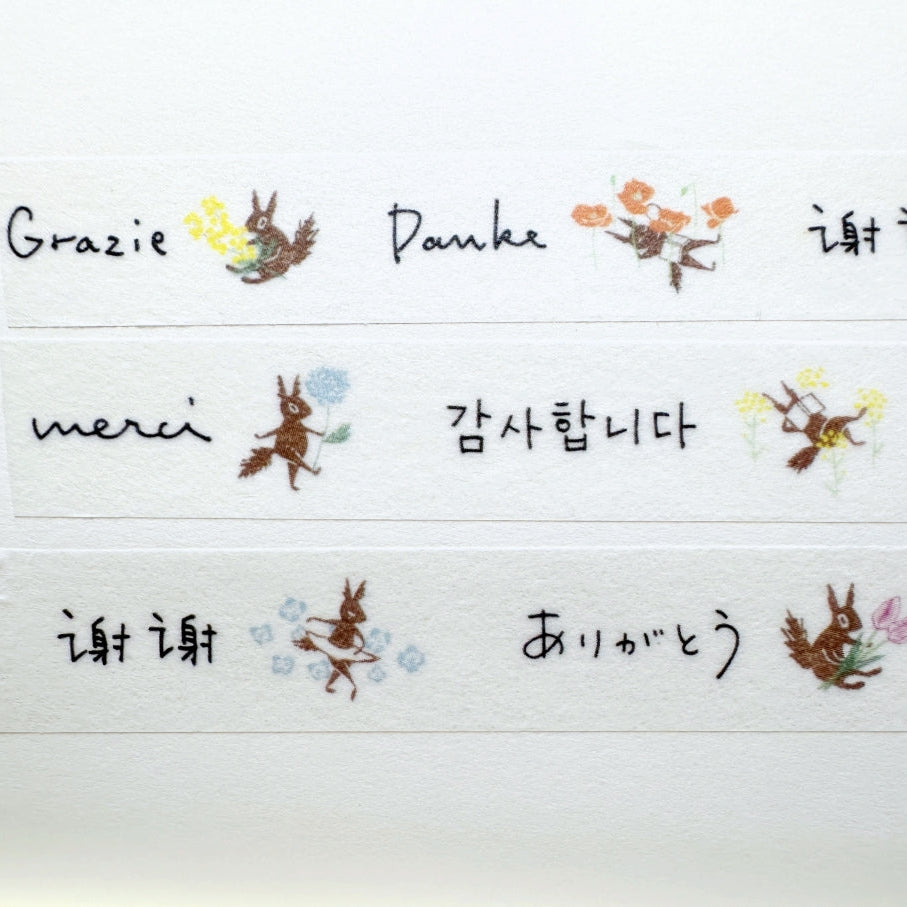 Grazie Danke 谢
merci 감사합니다
谢谢 ありがとう